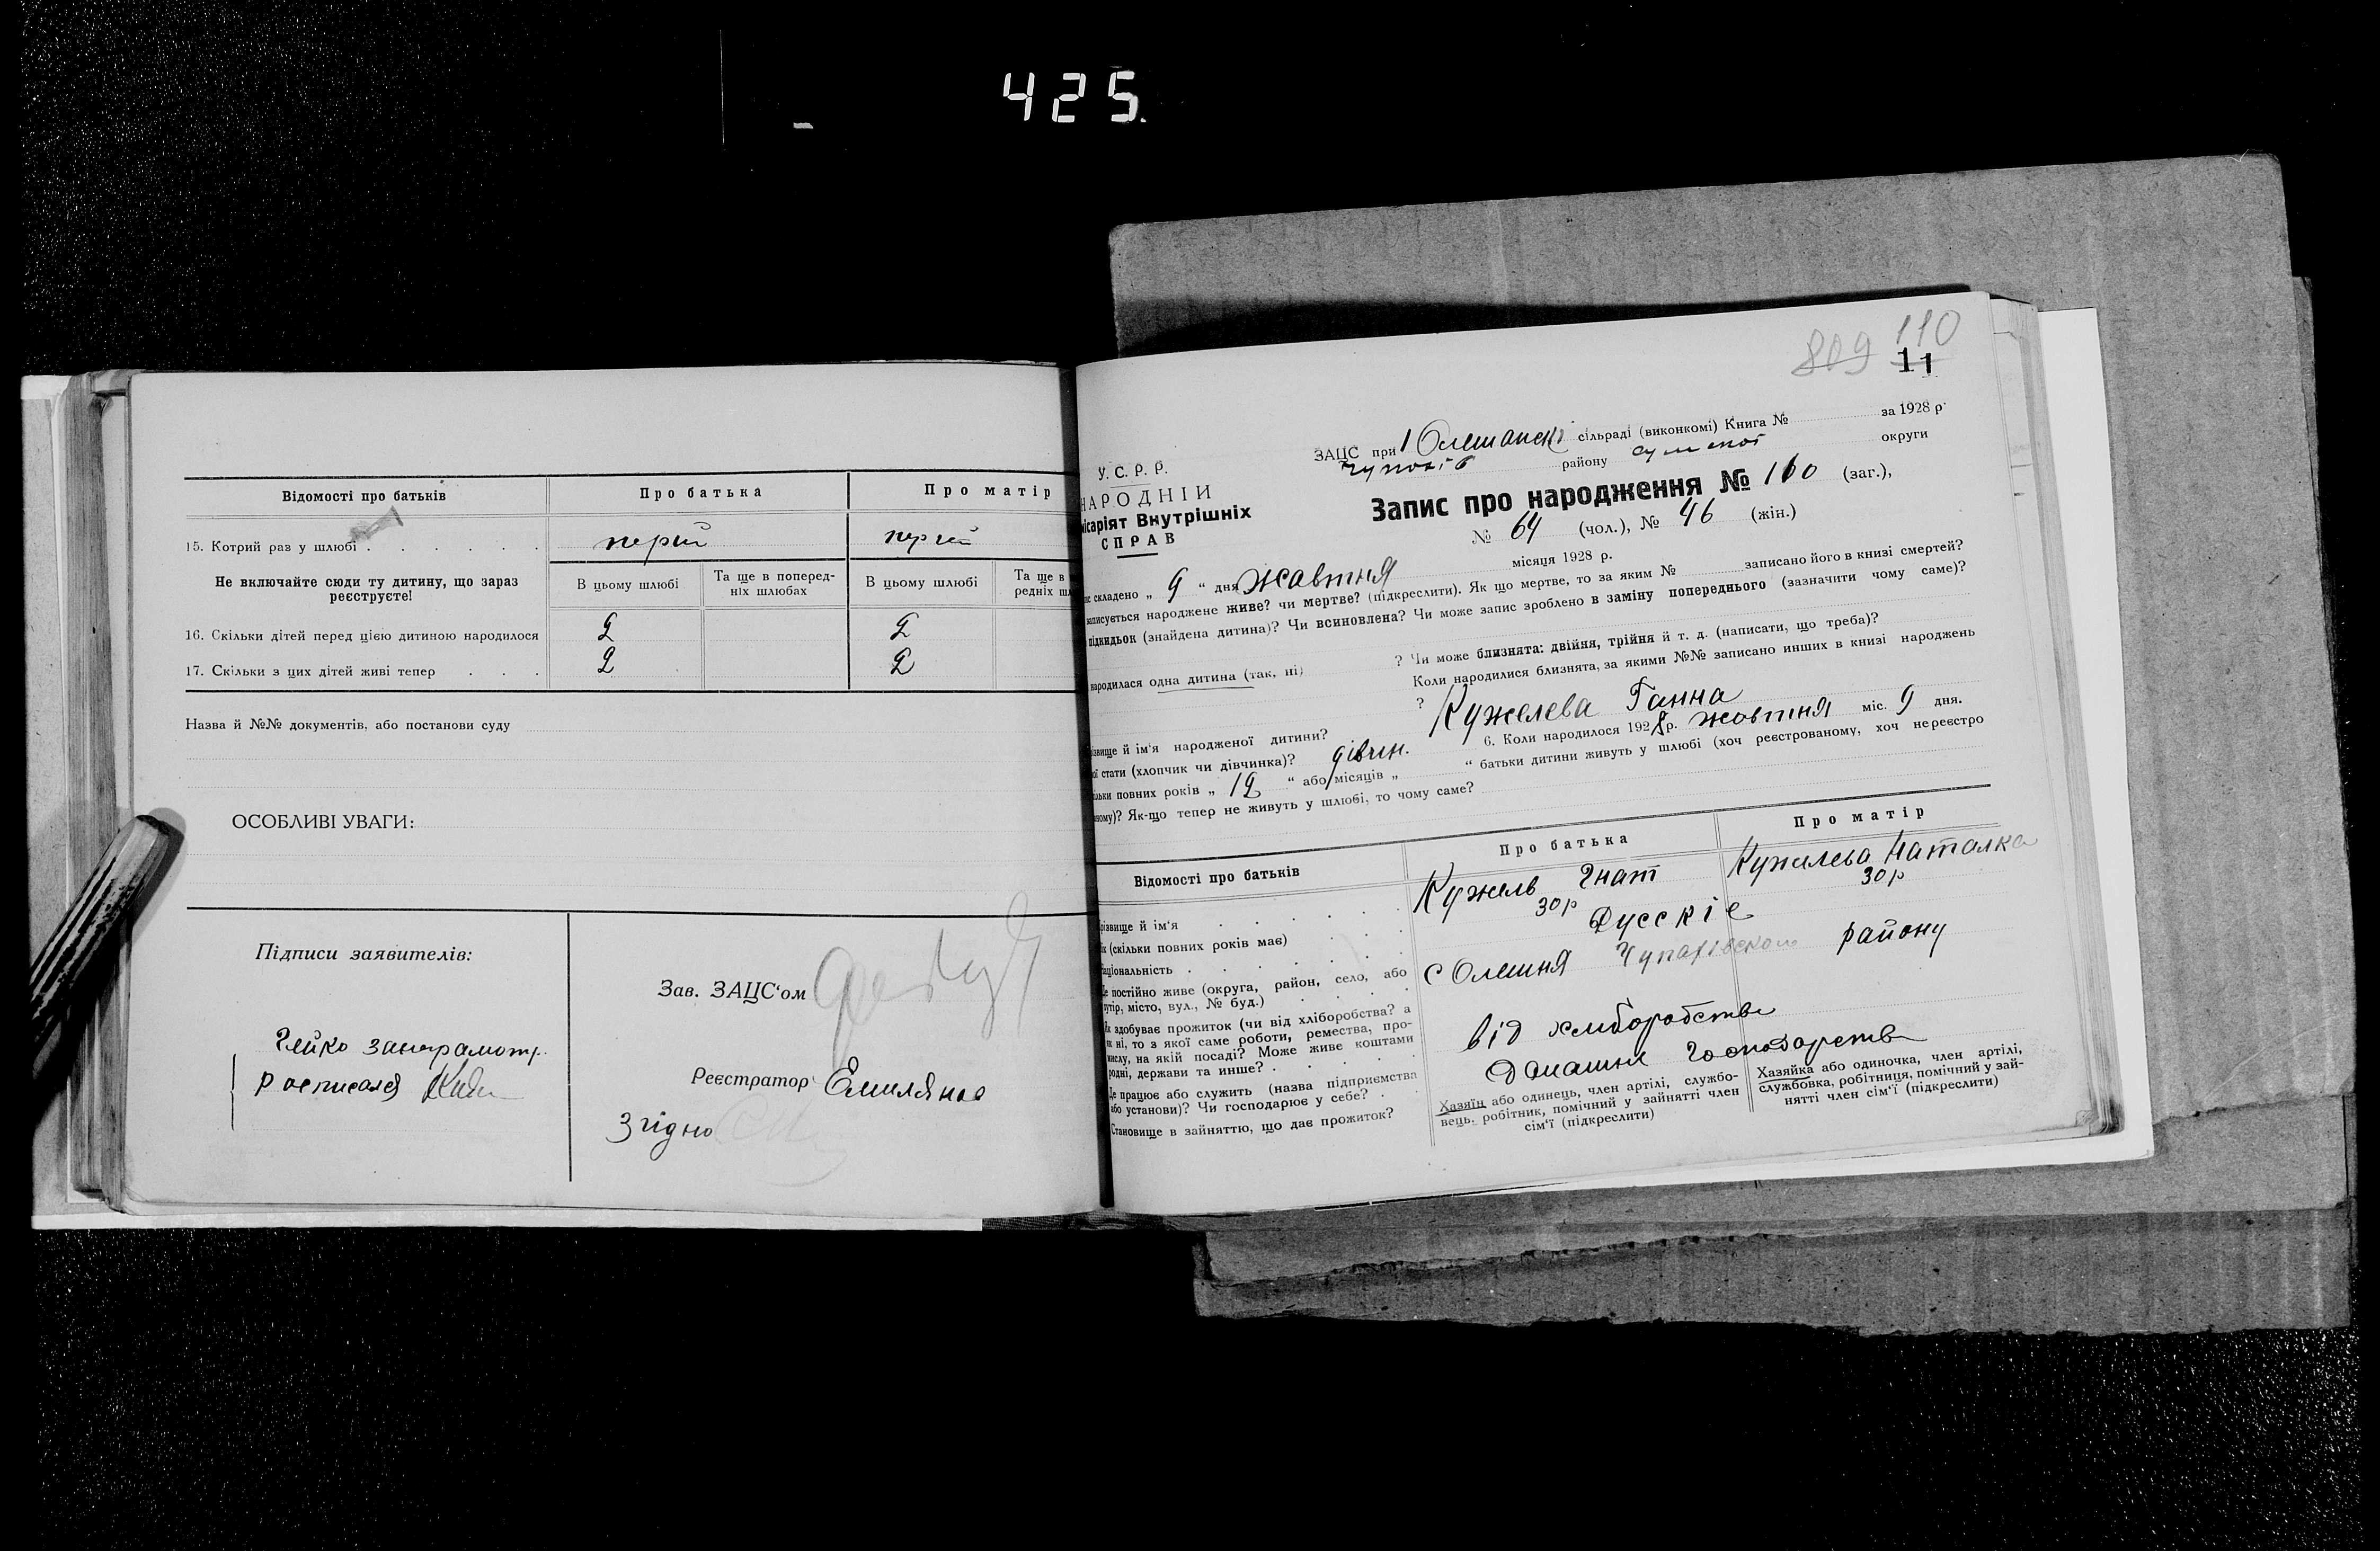 425.
Відомості про батьків
Про батька
Про матір
15. Котрий раз у шлюбі
перш
Не включайте сюди ту дитину, що зараз реєструєте!
В цьому шлюбі
Та ще в поперед-
ніх шлюбах
В цьому шлюбі
Та ще в
редніх шл
16. Скільки дітей перед цією дитиною народилося
2
2
17. Скільки з цих дітей живі тепер
2
2
Назва й №№ документів, або постанови суду
ОСОБЛИВІ УВАГИ:
Підписи заявителів:
росписался
Зав. ЗАЦС'ом
Реєстратор Емиляно
Згідно
809 110
11
У. С. Р. Р.
НАРОДНІЙ
ісаріят Внутрішніх
СПРАВ
ЗАЦС при Олешанскі сільраді (виконкомі) Книга № за 1928 р.
району округи
Запис про народження № 110 (заг.),
№ 64 (чол.), № 46 (жін.)
ис складено „ 9 “ дня жовтня місяця 1928 р.
записується народжене живе? чи мертве? (підкреслити). Як що мертве, то за яким № записано його в книзі смертей?
підкидьок (знайдена дитина)? Чи всиновлена? Чи може запис зроблено в заміну попереднього (зазначити чому саме)?
? Чи може близнята: двійня, трійня й т. д. (написати, що треба)?
народилася одна дитина (так, ні)
Коли народилися близнята, за якими №№ записано инших в книзі народжень
?
різвище й ім'я народженої дитини? Кужелева Ганна
ої стати (хлопчик чи дівчинка)? дівчин. 6. Коли народилося 1928 р. жовтня міс. 9 дня.
ільки повних років „ 12 “ або місяців „ “ батьки дитини живуть у шлюбі (хоч реєстрованому, хоч нереєстро
ному)? Як-що тепер не живуть у шлюбі, то чому саме?
Відомості про батьків
Про батька
Про матір
різвище й ім'я
Кужель Гнат
Кужелева Наталка
ік (скільки повних років має)
30 р
30 р
аціональність
Русскіе
Де постійно живе (округа, район, село, або
хутір, місто, вул., № буд.)
с Олешня Чупахівского району
Як здобуває прожиток (чи від хліборобства? а
як ні, то з якої саме роботи, ремества, про-
мислу, на якій посаді? Може живе коштами
родні, держави та инше?
від хлиборобства
Де працює або служить (назва підприємства
або установи)? Чи господарює у себе?
Домашнє господарства
Становище в зайняттю, що дає прожиток?
Хазяїн або одинець, член артілі, службо-
вець, робітник, помічний у зайнятті член
сім'ї (підкреслити)
Хазяйка або одиночка, член артілі,
службовка, робітниця, помічний у зай-
нятті член сім'ї (підкреслити)